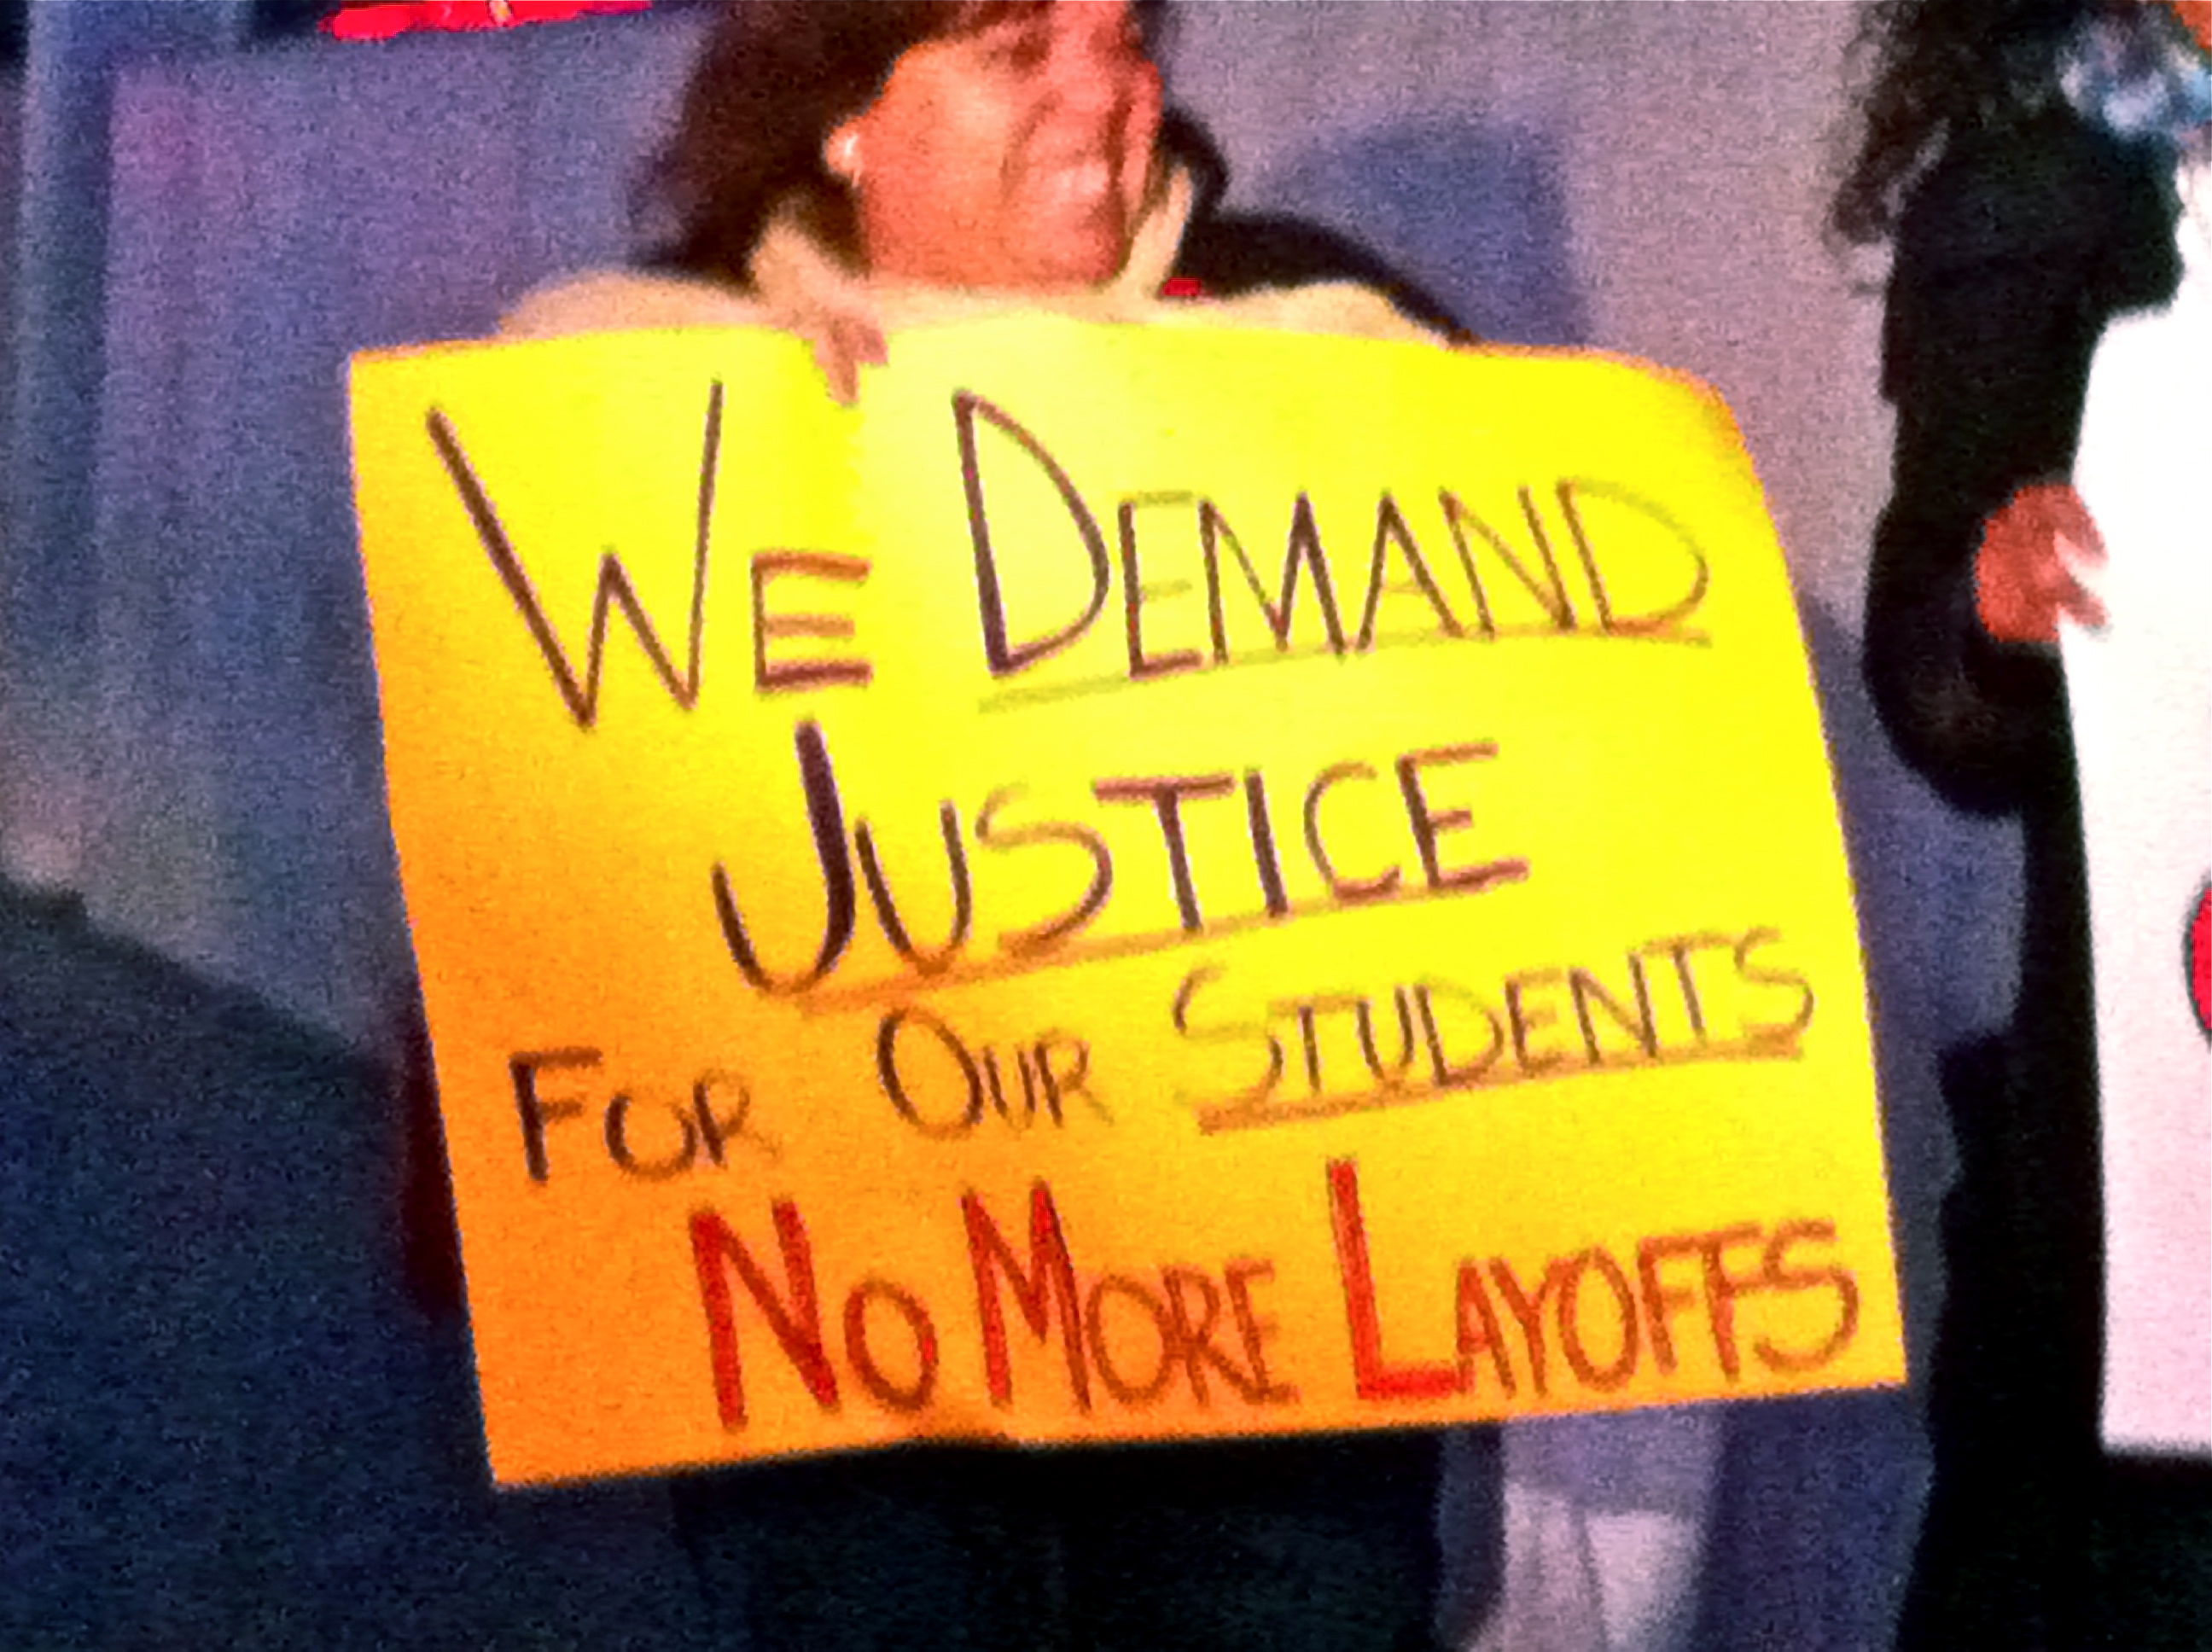 WE DEMAND
JUSTICE
FOR OUR STUDENTS
NO MORE LAYOFFS